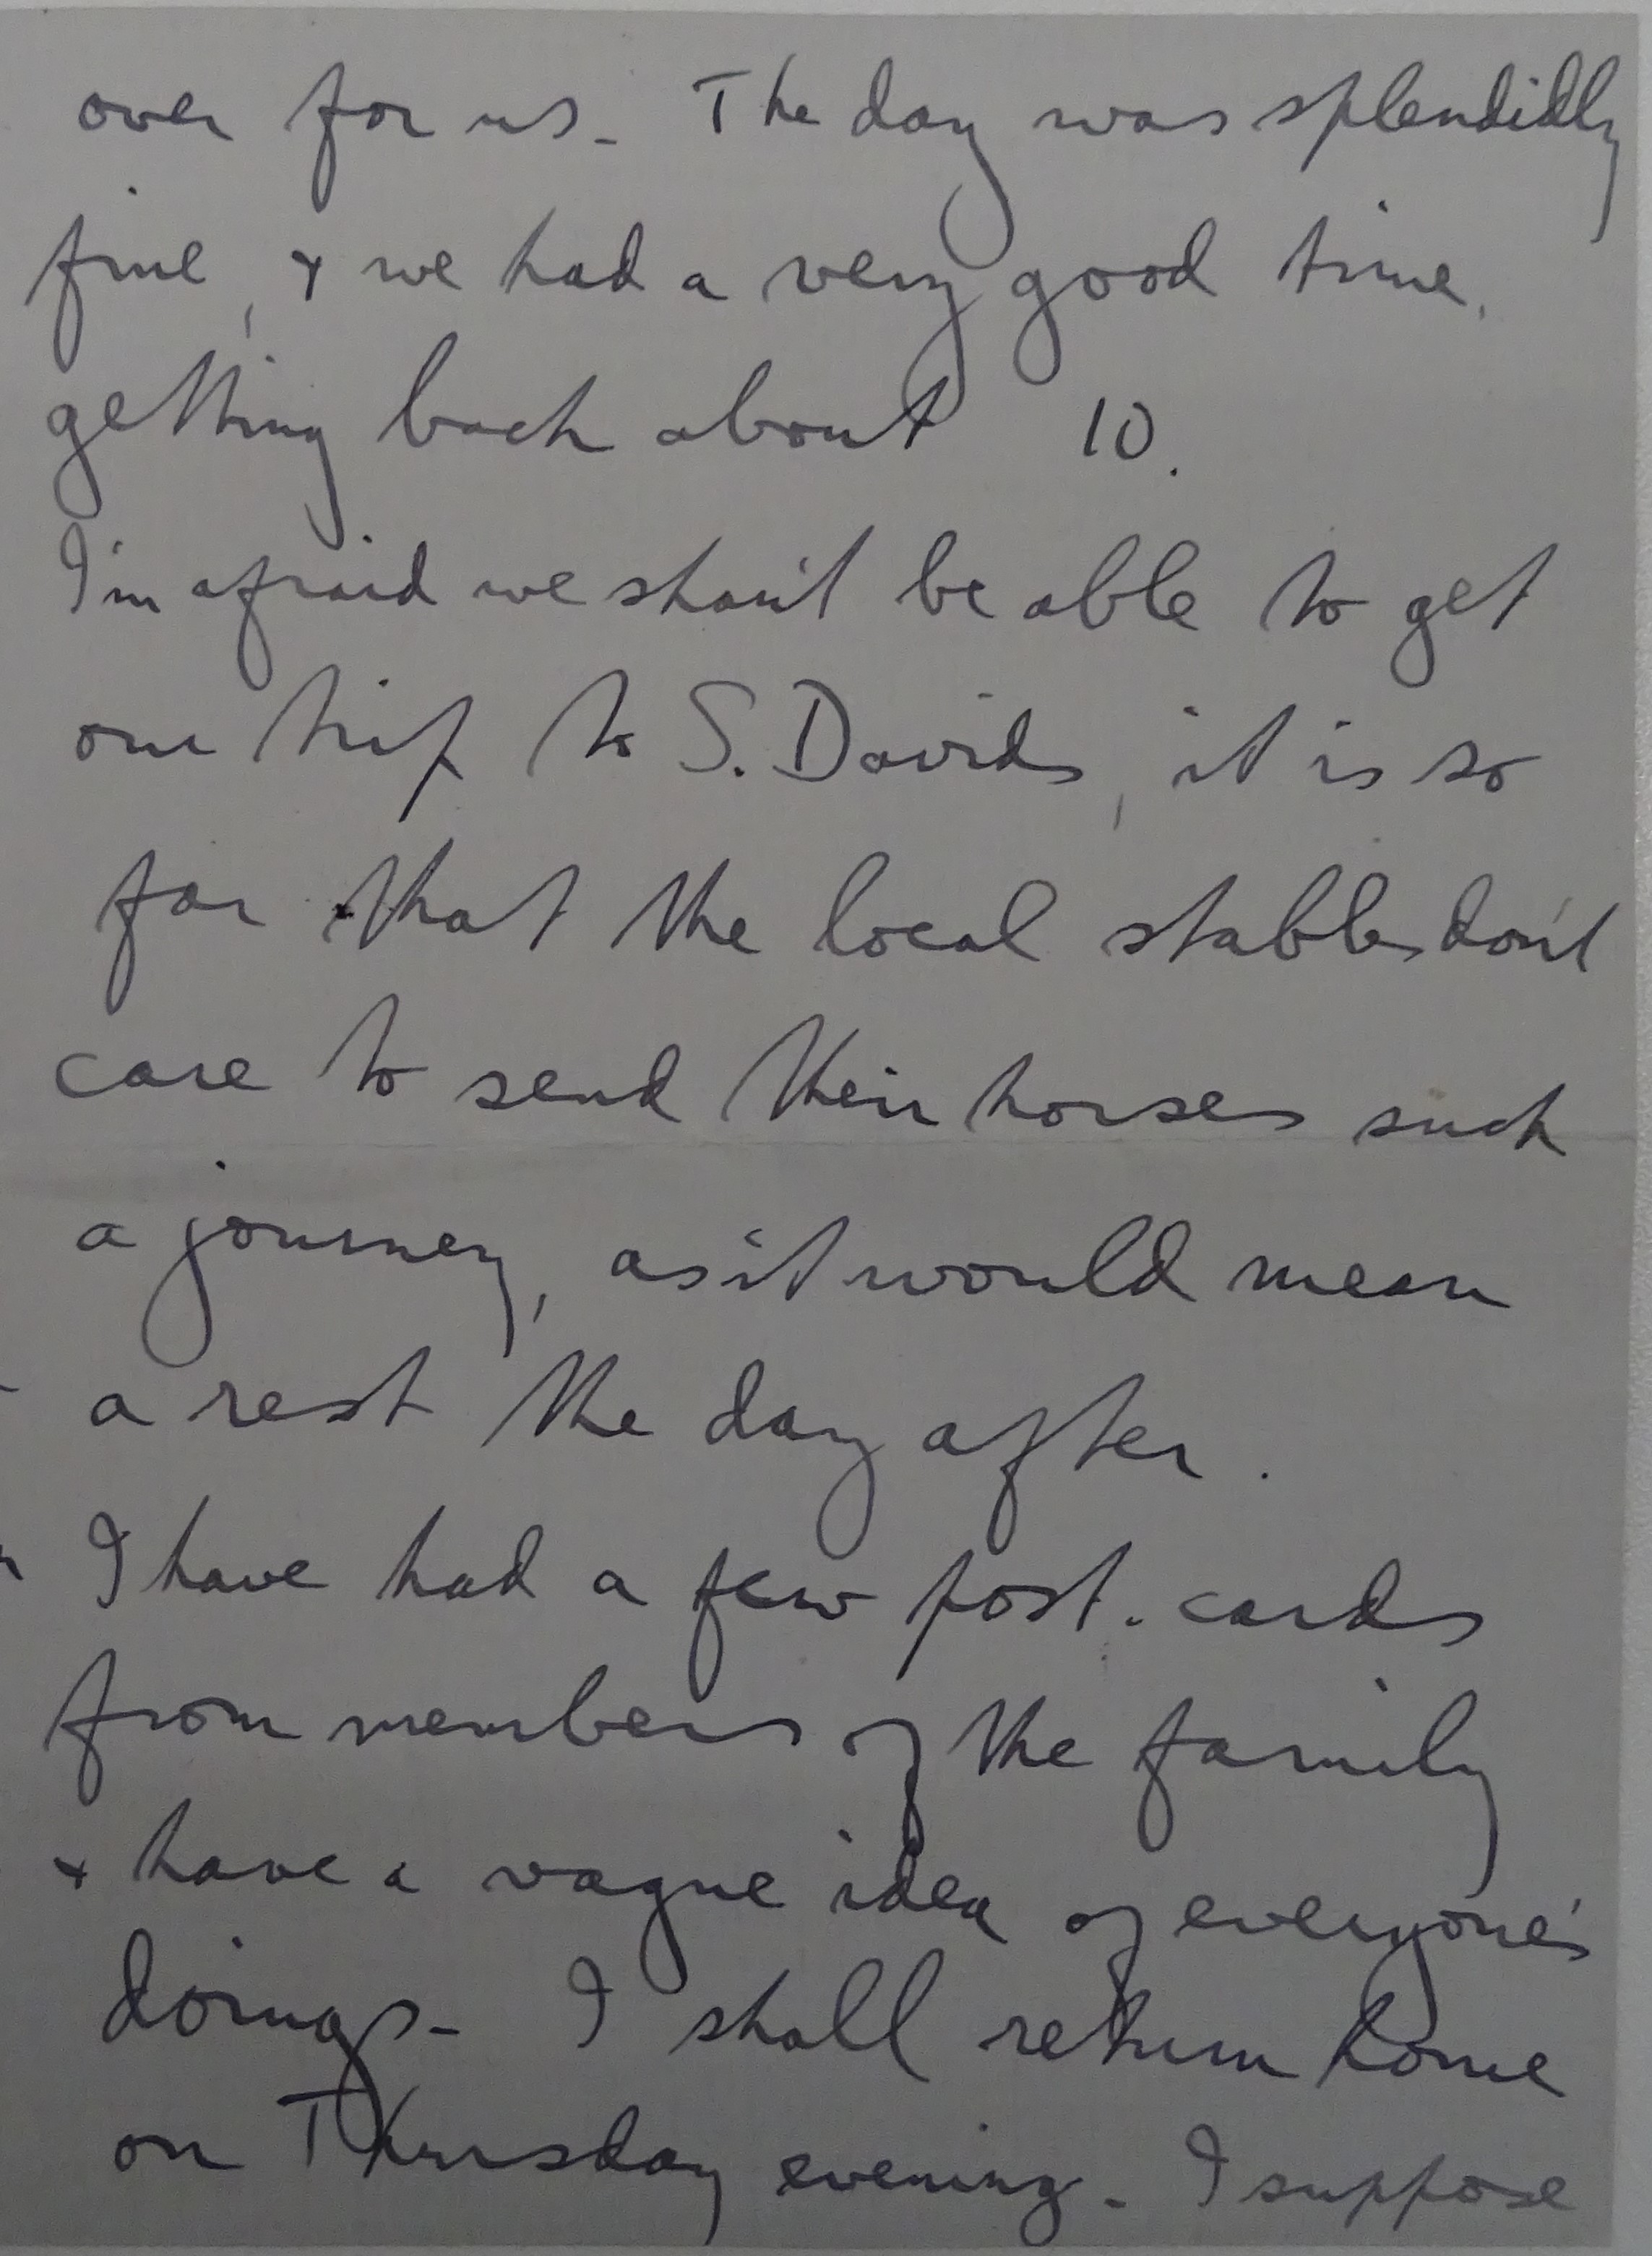 over for us. The day was splendidly
fine, & we had a very good time,
getting back about 10.
I'm afraid we shan't be able to get
our trip to S. Davids, it is so
far that the local stables don't
care to send their horses such
a journey, as it would mean
a rest the day after.
I have had a few post-cards
from members of the family
& have a vague idea of everyone's
doings - I shall return home
on Thursday evening. I suppose